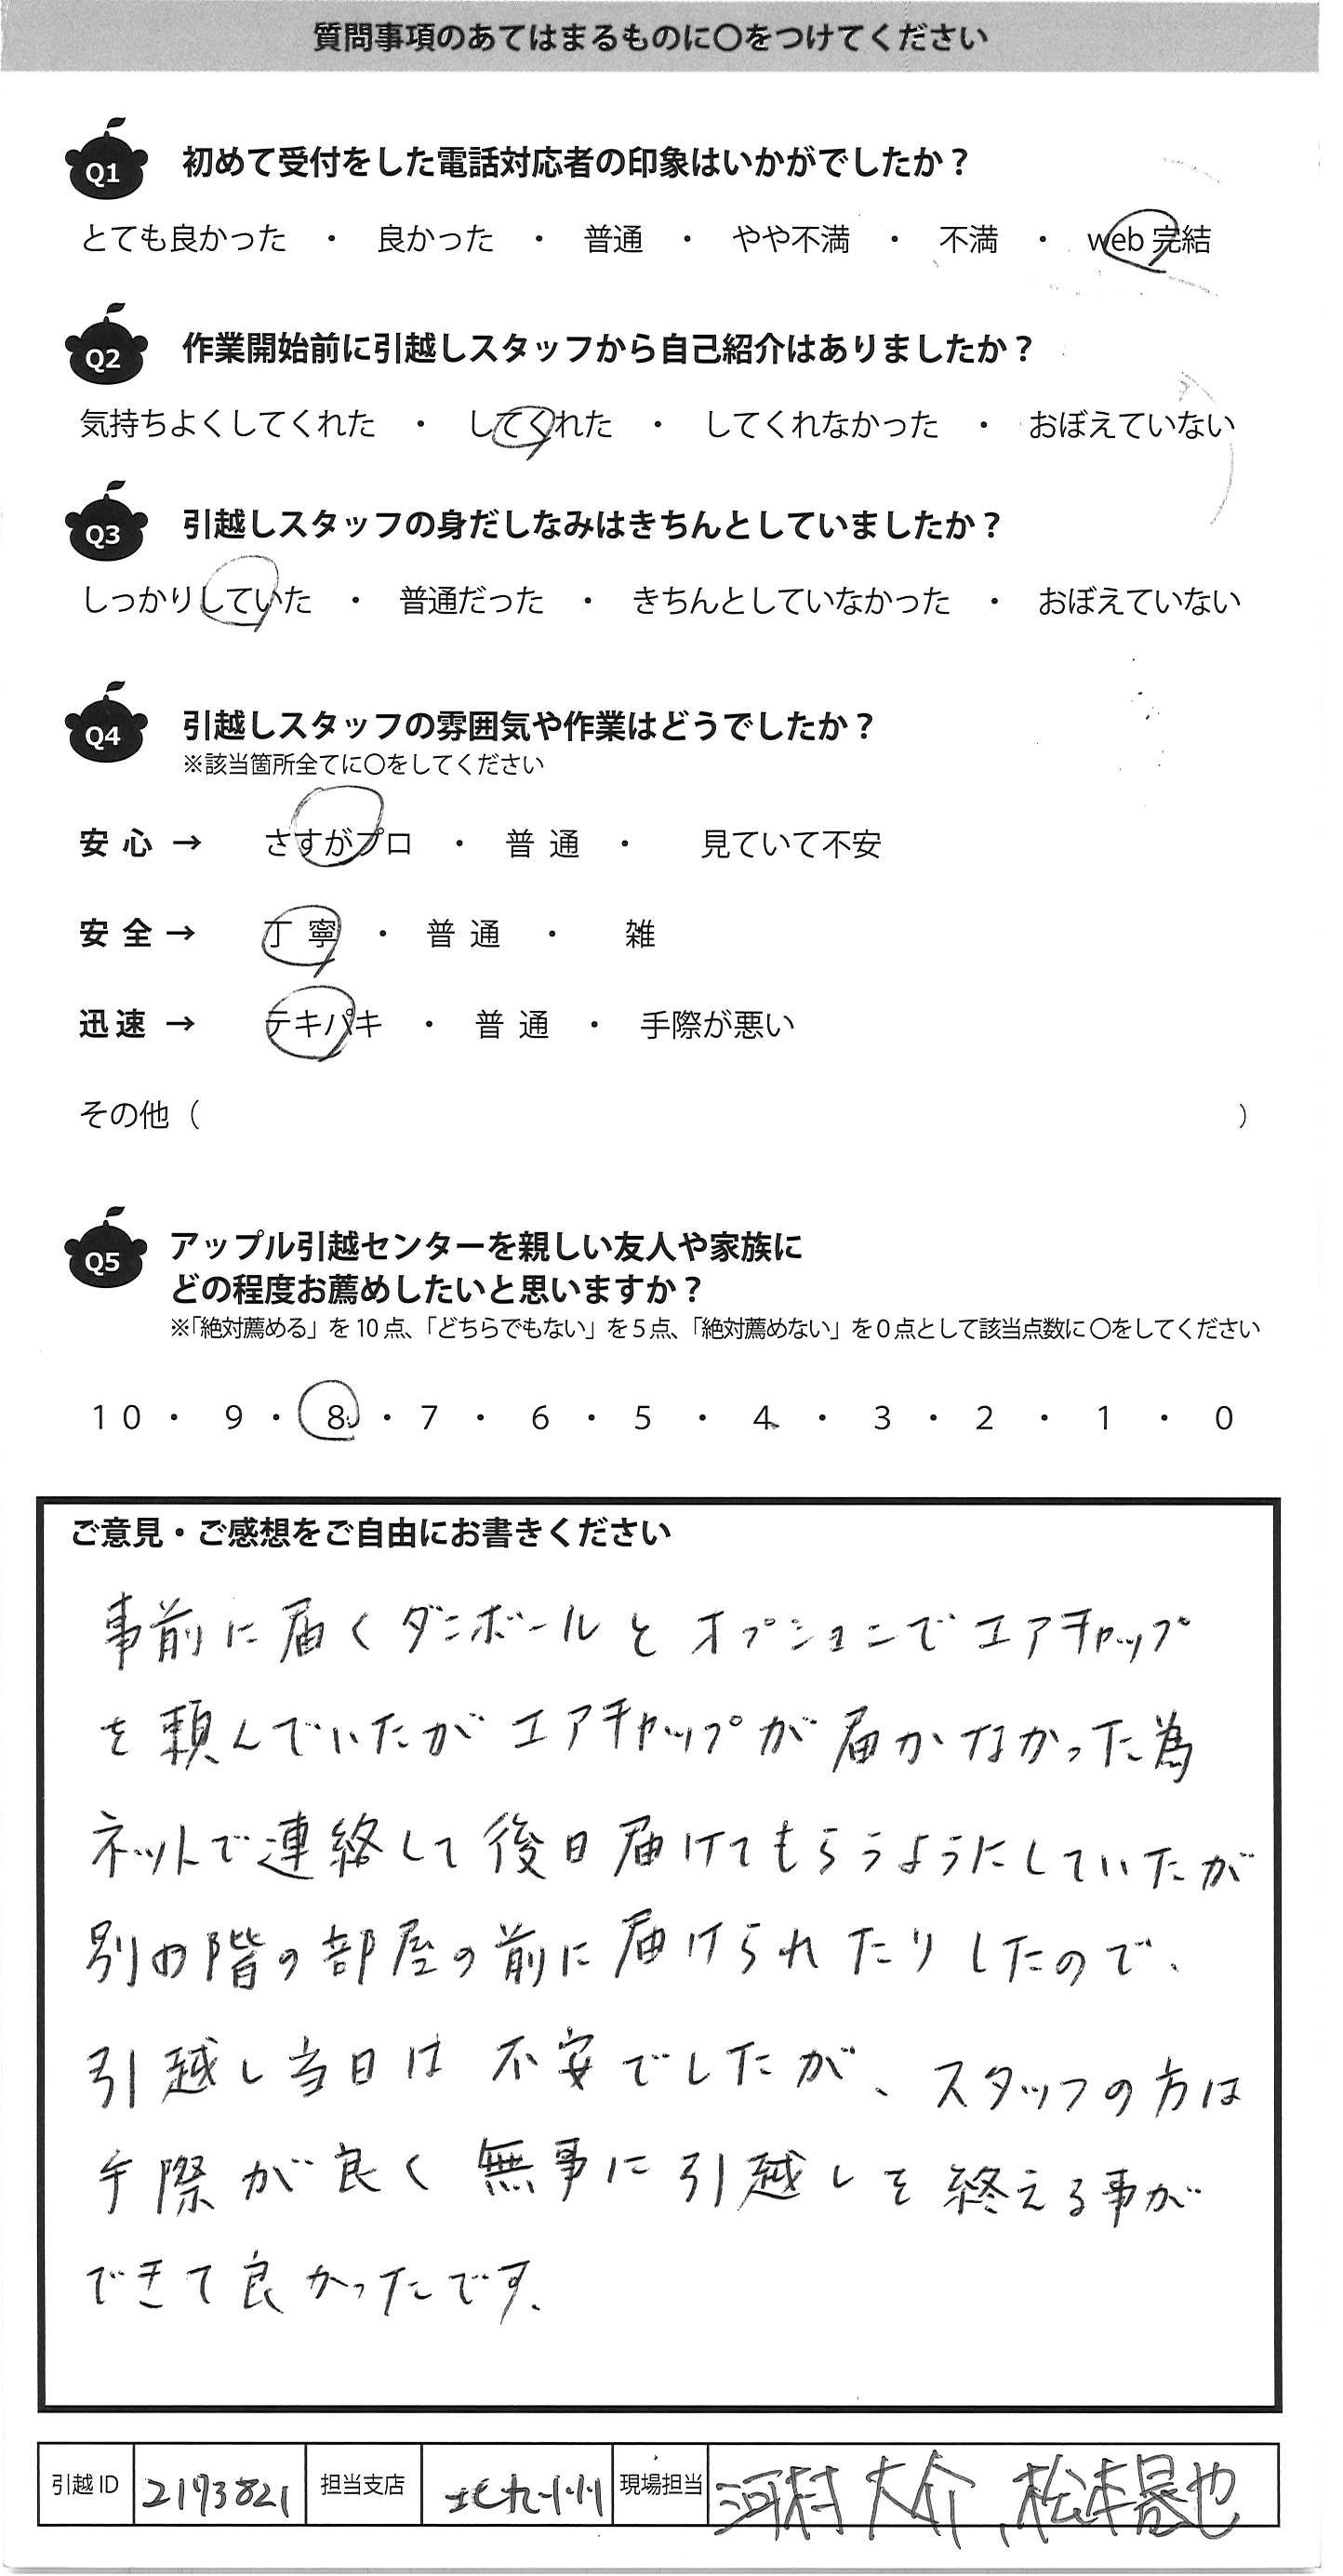 質問事項のあてはまるものに〇をつけてください
Q1 初めて受付をした電話対応者の印象はいかがでしたか？
とても良かった ・ 良かった ・ 普通 ・ やや不満 ・ 不満 ・ web完結
Q2 作業開始前に引越しスタッフから自己紹介はありましたか？
気持ちよくしてくれた ・ してくれた ・ してくれなかった ・ おぼえていない
Q3 引越しスタッフの身だしなみはきちんとしていましたか？
しっかりしていた ・ 普通だった ・ きちんとしていなかった ・ おぼえていない
Q4 引越しスタッフの雰囲気や作業はどうでしたか？
※該当箇所全てに〇をしてください
安心 → さすがプロ ・ 普通 ・ 見ていて不安
安全 → 丁寧 ・ 普通 ・ 雑
迅速 → テキパキ ・ 普通 ・ 手際が悪い
その他（ ）
Q5 アップル引越センターを親しい友人や家族に
どの程度お薦めしたいと思いますか？
※「絶対薦める」を10点、「どちらでもない」を5点、「絶対薦めない」を0点として該当点数に〇をしてください
10 ・ 9 ・ 8 ・ 7 ・ 6 ・ 5 ・ 4 ・ 3 ・ 2 ・ 1 ・ 0
ご意見・ご感想をご自由にお書きください
事前に届くダンボールとオプションでエアキャップ
を頼んでいたがエアキャップが届かなかった為
ネットで連絡して後日届けてもらうようにしていたが
別の階の部屋の前に届けられたりしたので、
引越し当日は不安でしたが、スタッフの方は
手際が良く無事に引越しを終える事が
できて良かったです。
引越ID 2193821 担当支店 北九州 現場担当 河村 大介、松本 也